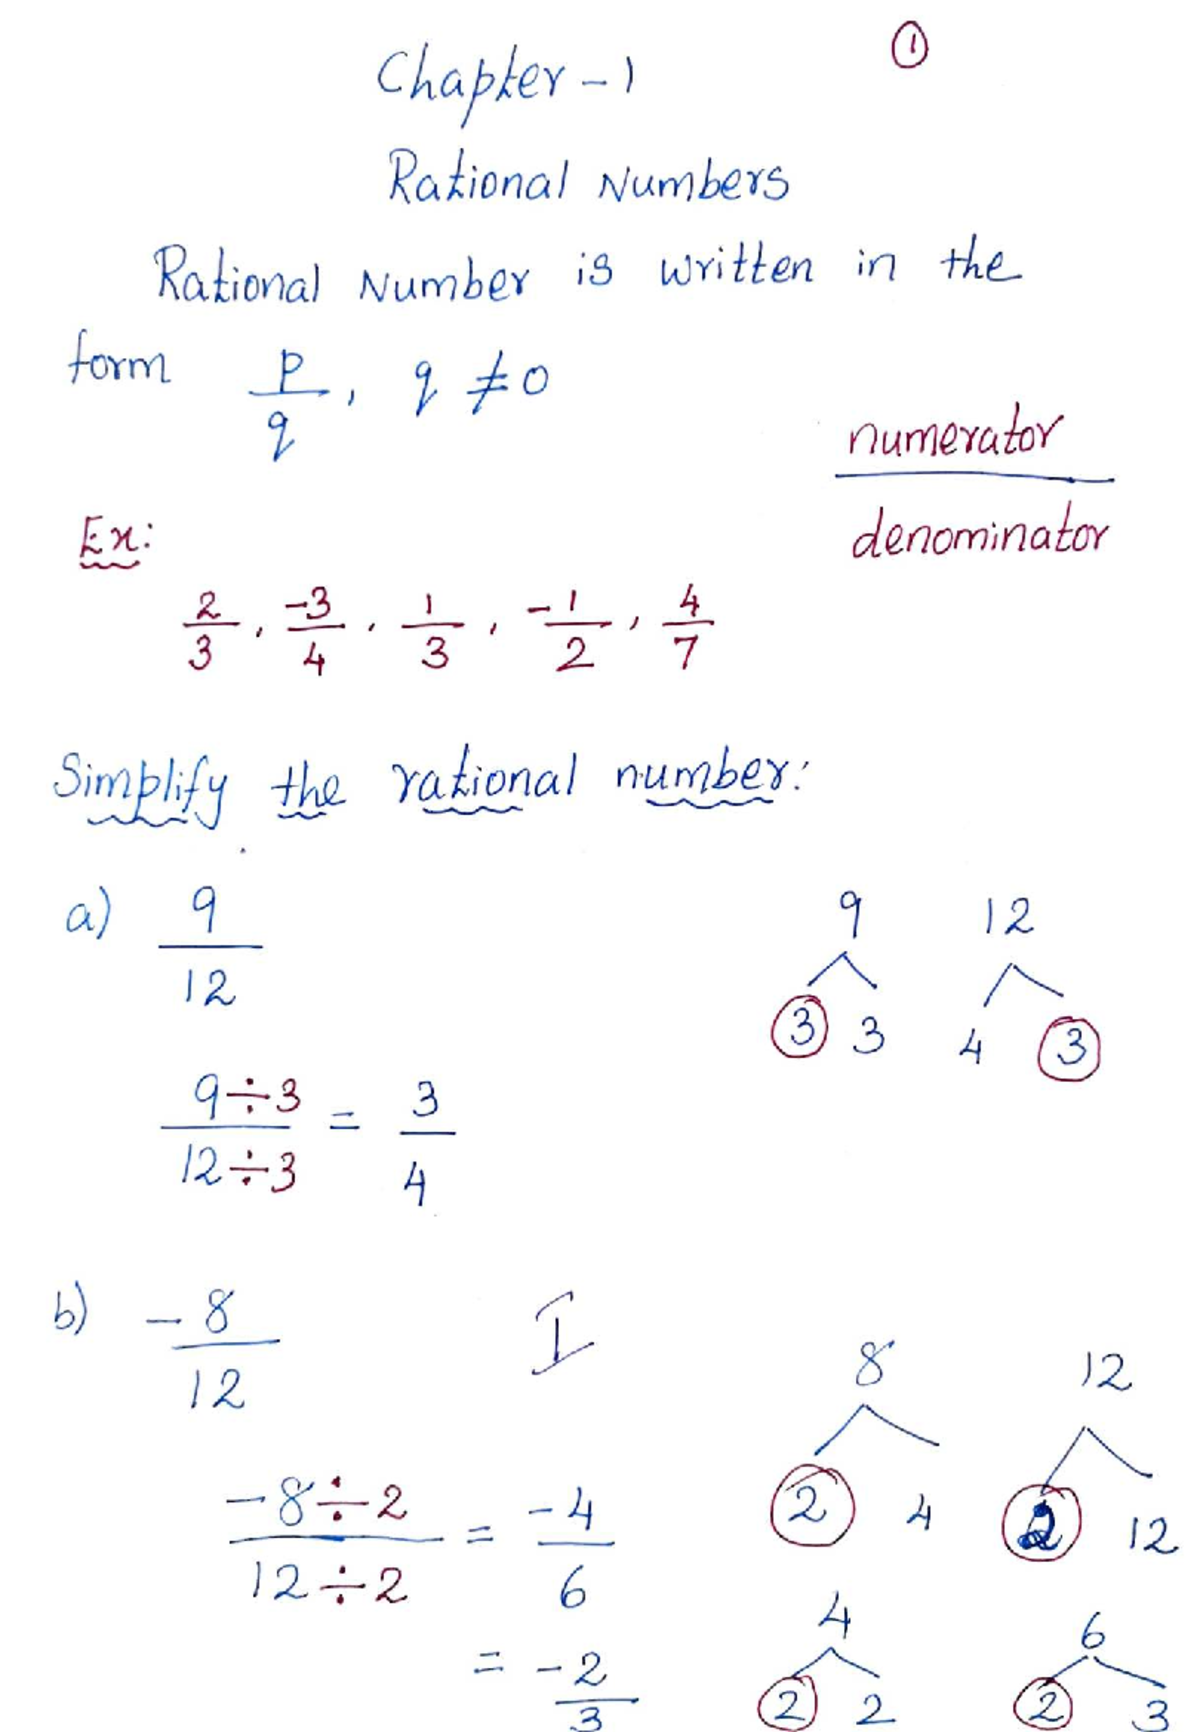 ①
Chapter - 1
Rational Numbers
Rational Number is written in the
form p/q, q ≠ 0
numerator
denominator
Ex:
2/3, -3/4, 1/3, -1/2, 4/7
Simplify the rational number:
a) 9/12
9 12
3 3 4 3
9÷3/12÷3 = 3/4
b) -8/12 I
8 12
2 4 2 12
-8÷2/12÷2 = -4/6
4 6
= -2/3
2 2 2 3